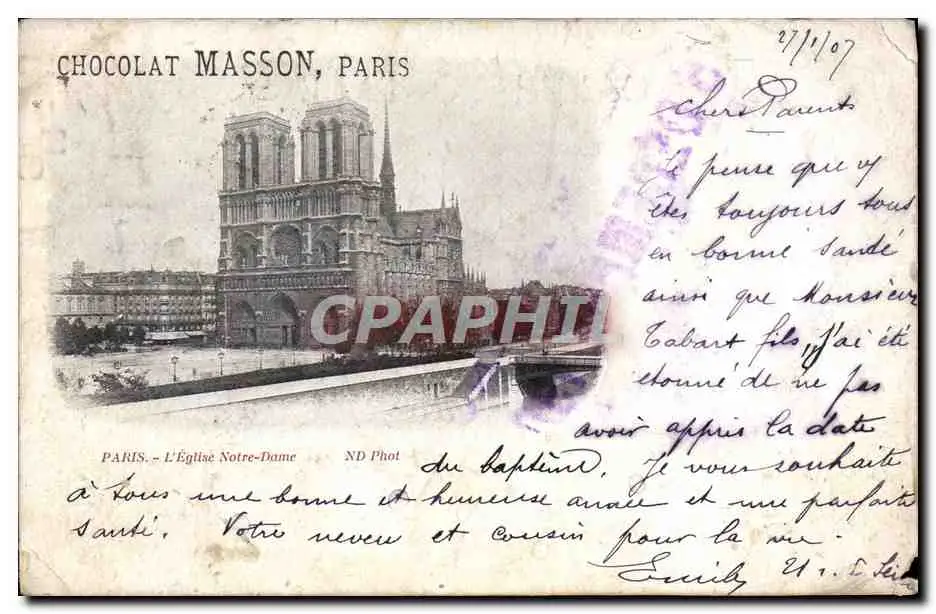 CHOCOLAT MASSON, PARIS
27/1/07
Chers Parents
Je pense que vs
êtes toujours tous
en bonne santé
ainsi que Monsieur
Tabart fils, J'ai été
étonné de ne pas
avoir appris la date
PARIS. - L'Église Notre-Dame ND Phot
du baptême. Je vous souhaite
à tous une bonne et heureuse année et une parfaite
santé. Votre neveu et cousin pour la vie.
Emile
CPAPHIL